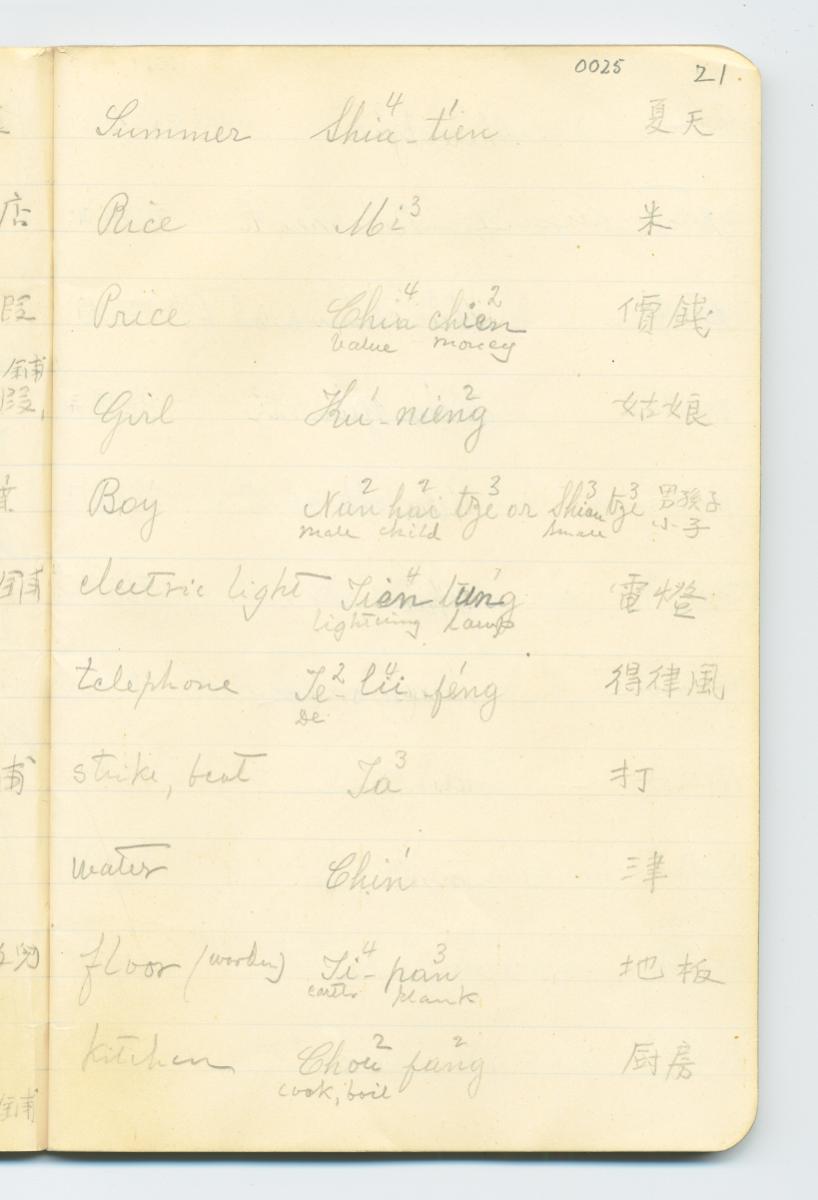 0025 21
Summer Shia⁴-tien¹ 夏天
Rice Mi³ 米
Price Chia⁴ chien² 價錢
value money
Girl Ku¹-nieng² 姑娘
Boy Nan² hai² tze³ or Shiau³ tze³ 男孩子
male child small 小子
electric light Tien⁴ tung¹ 電燈
lightning lamp
telephone Te²-lii⁴-feng¹ 得律風
De
strike, beat Ta³ 打
water Chin¹ 津
floor (wooden) Ti⁴-pan³ 地板
earth plank
kitchen Chou² fang² 厨房
cook, boil
店
段
鋪
段,
鋪
甫
鋪